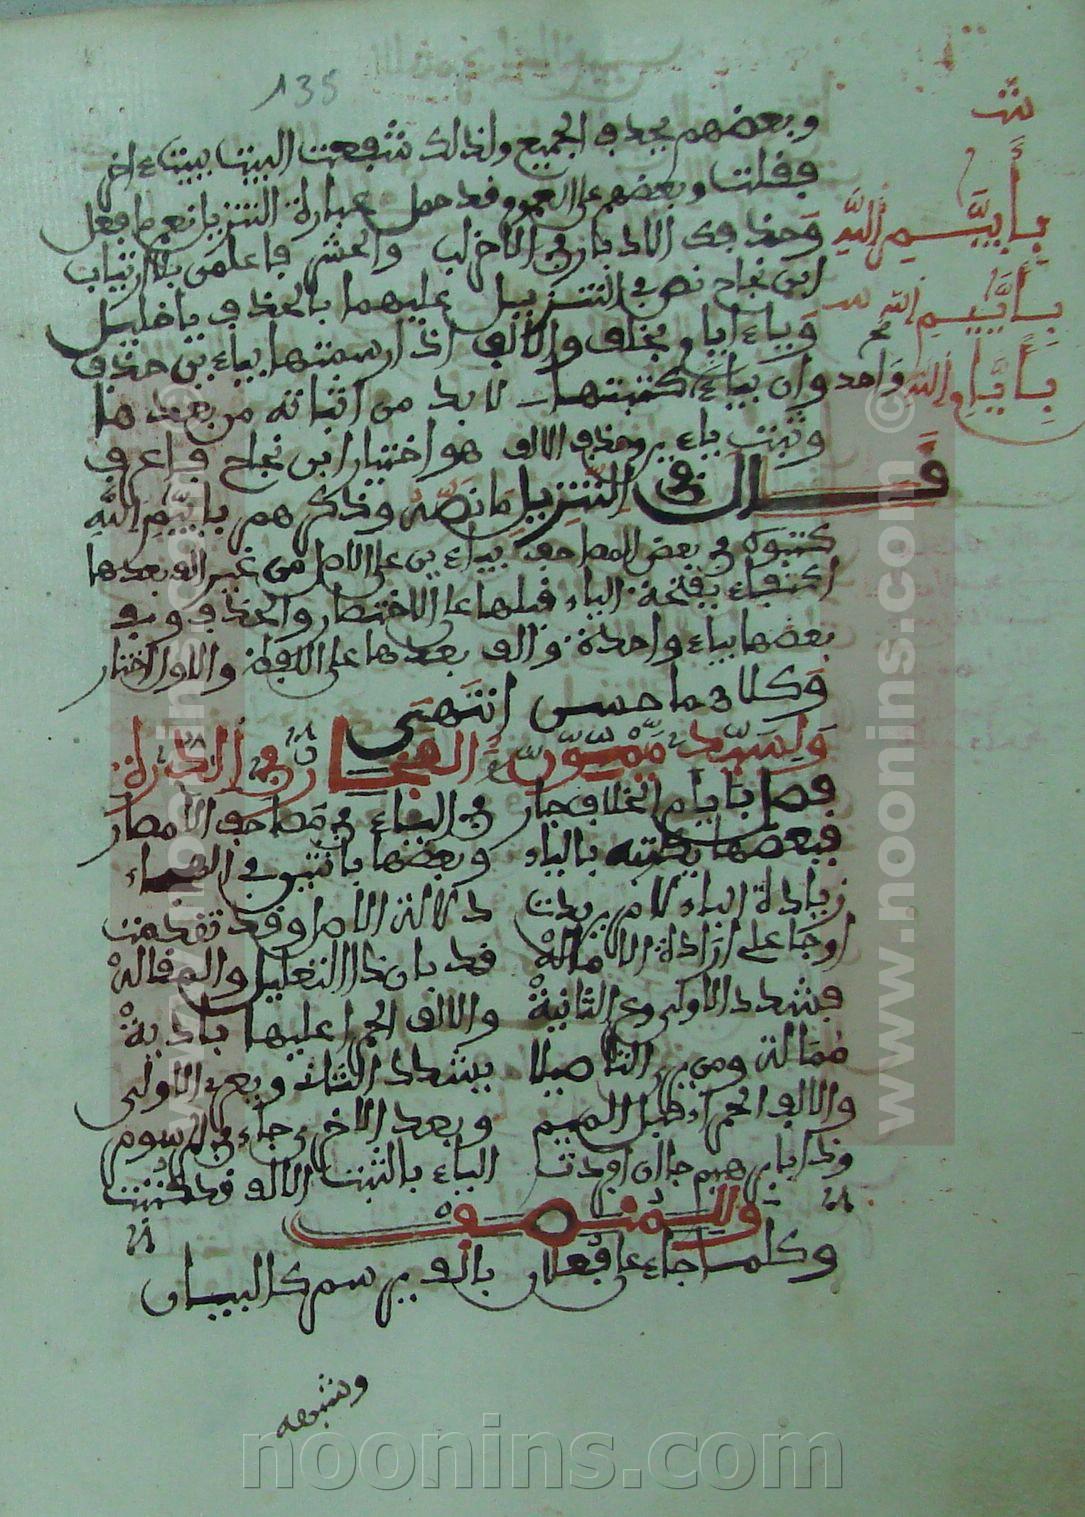 135
وبعضهم بحذف الجميع ولذلك شفعت البيت ببيت ءاخر
فقلت وبعضهم على العموم وقد حمل عبارة التنزيل نعم ما فعل
وحذفك الادبار في الاحزاب والحشر فاعلمن بلا ارتياب
ابن نجاح نص في التنزيل عليهما بالحذف يا خليل
وياء اييام بخلف والالف اذا رسمتها بياءين حذف
وان بياء كتبتها لا بد من اثباته من بعدها
وثبت ياءين وحذف الالف هو اختيار ابن نجاح فاعرف
قال في التنزيل ما نصه وذكرهم باييم الله
كتبوه في بعض المصاحف بياءين على الاصل من غير الف بعدها
اكتفاء بفتحة الياء قبلها على الاختصار والحذف وفي
بعضها بياء واحدة والف بعدها على اللفظ والاول اختار
وكلاهما حسن انتهى
ولسيد ميمون الفخار في الدرة
فصل باييام الخلاف جار في الياء في مصاحف الامصار
فبعضها يكتبه بالياء وبعضها باثنين في الهجاء
زيادة الياء لام زيدت دلالة الامر او قد تقدمت
او جا على ارادة الامالة قد بان ذا التعليل والمقالة
فشدد الاولى وعر الثانية والالف الحمرا عليها بادية
ممالة ومن يرى التاصيلا يشدد الثان ويعر الاولى
والالف الحمراء قبل الميم وبعد الاخرى جاء في المرسوم
وذا بابرهيم جا ان افردت الياء بالثبت الالف قد كتبت
وللمنصف
وكلما جاء على فعلان بالف يرسم كالبيان
وشبهه
ثبت
بأييم الله
بأييم الله
بأيام الله
واحد
www.noonins.com ©
www.noonins.com ©
noonins.com